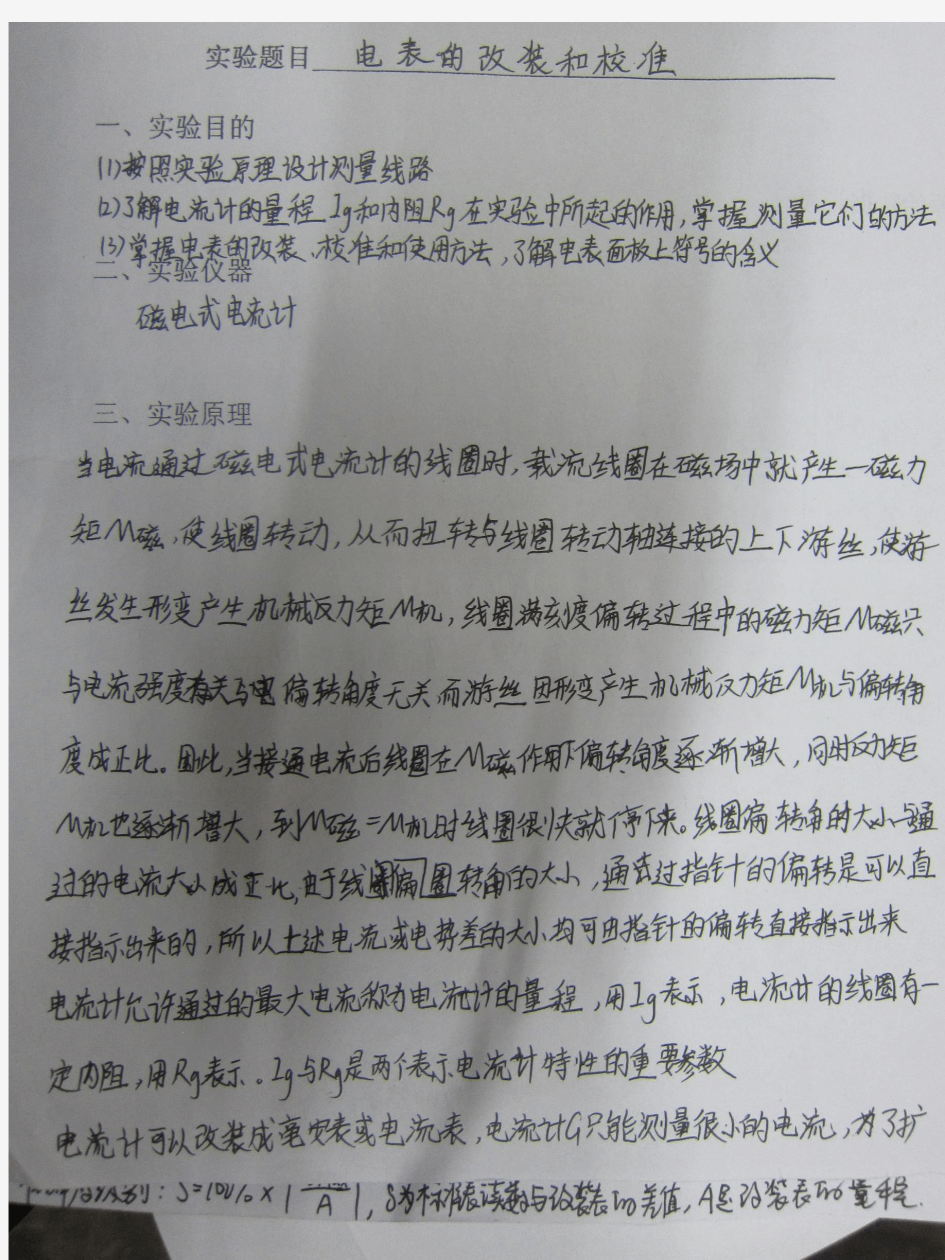 实验题目 电表的改装和校准
一、实验目的
(1)按照实验原理设计测量线路
(2)了解电流计的量程Ig和内阻Rg在实验中所起的作用,掌握测量它们的方法
(3)掌握电表的改装、校准和使用方法,了解电表面板上符号的含义
二、实验仪器
磁电式电流计
三、实验原理
当电流通过磁电式电流计的线圈时,载流线圈在磁场中就产生一磁力
矩M磁,使线圈转动,从而扭转与线圈转动轴连接的上下游丝,使游
丝发生形变产生机械反力矩M机,线圈满刻度偏转过程中的磁力矩M磁只
与电流强度有关与电偏转角度无关而游丝因形变产生机械反力矩M机与偏转角
度成正比。因此,当接通电流后线圈在M磁作用下偏转角度逐渐增大,同时反力矩
M机也逐渐增大,到M磁=M机时线圈很快就停下来。线圈偏转角的大小与通
过的电流大小成正比,由于线圈偏转角的大小,通过指针的偏转是可以直
接指示出来的,所以上述电流或电势差的大小均可由指针的偏转直接指示出来
电流计允许通过的最大电流称为电流计的量程,用Ig表示,电流计的线圈有一
定内阻,用Rg表示。Ig与Rg是两个表示电流计特性的重要参数
电流计可以改装成毫安表或电流表,电流计G只能测量很小的电流,为了扩
S=100% × | A |, δ为标准表读数与改装表的差值,A是改装表的量程.